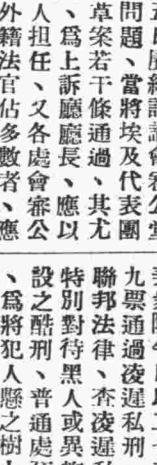 會審公堂
問題、當將埃及代表團
草案若干條通過、其尤
、爲上訴廳廳長、應以
人担任、又各處會審公
外籍法官佔多數者、應
九票通過凌遲私刑
聯邦法律、查凌遲私
特別對待黑人或異
設之酷刑、普通處
、爲將犯人懸之樹